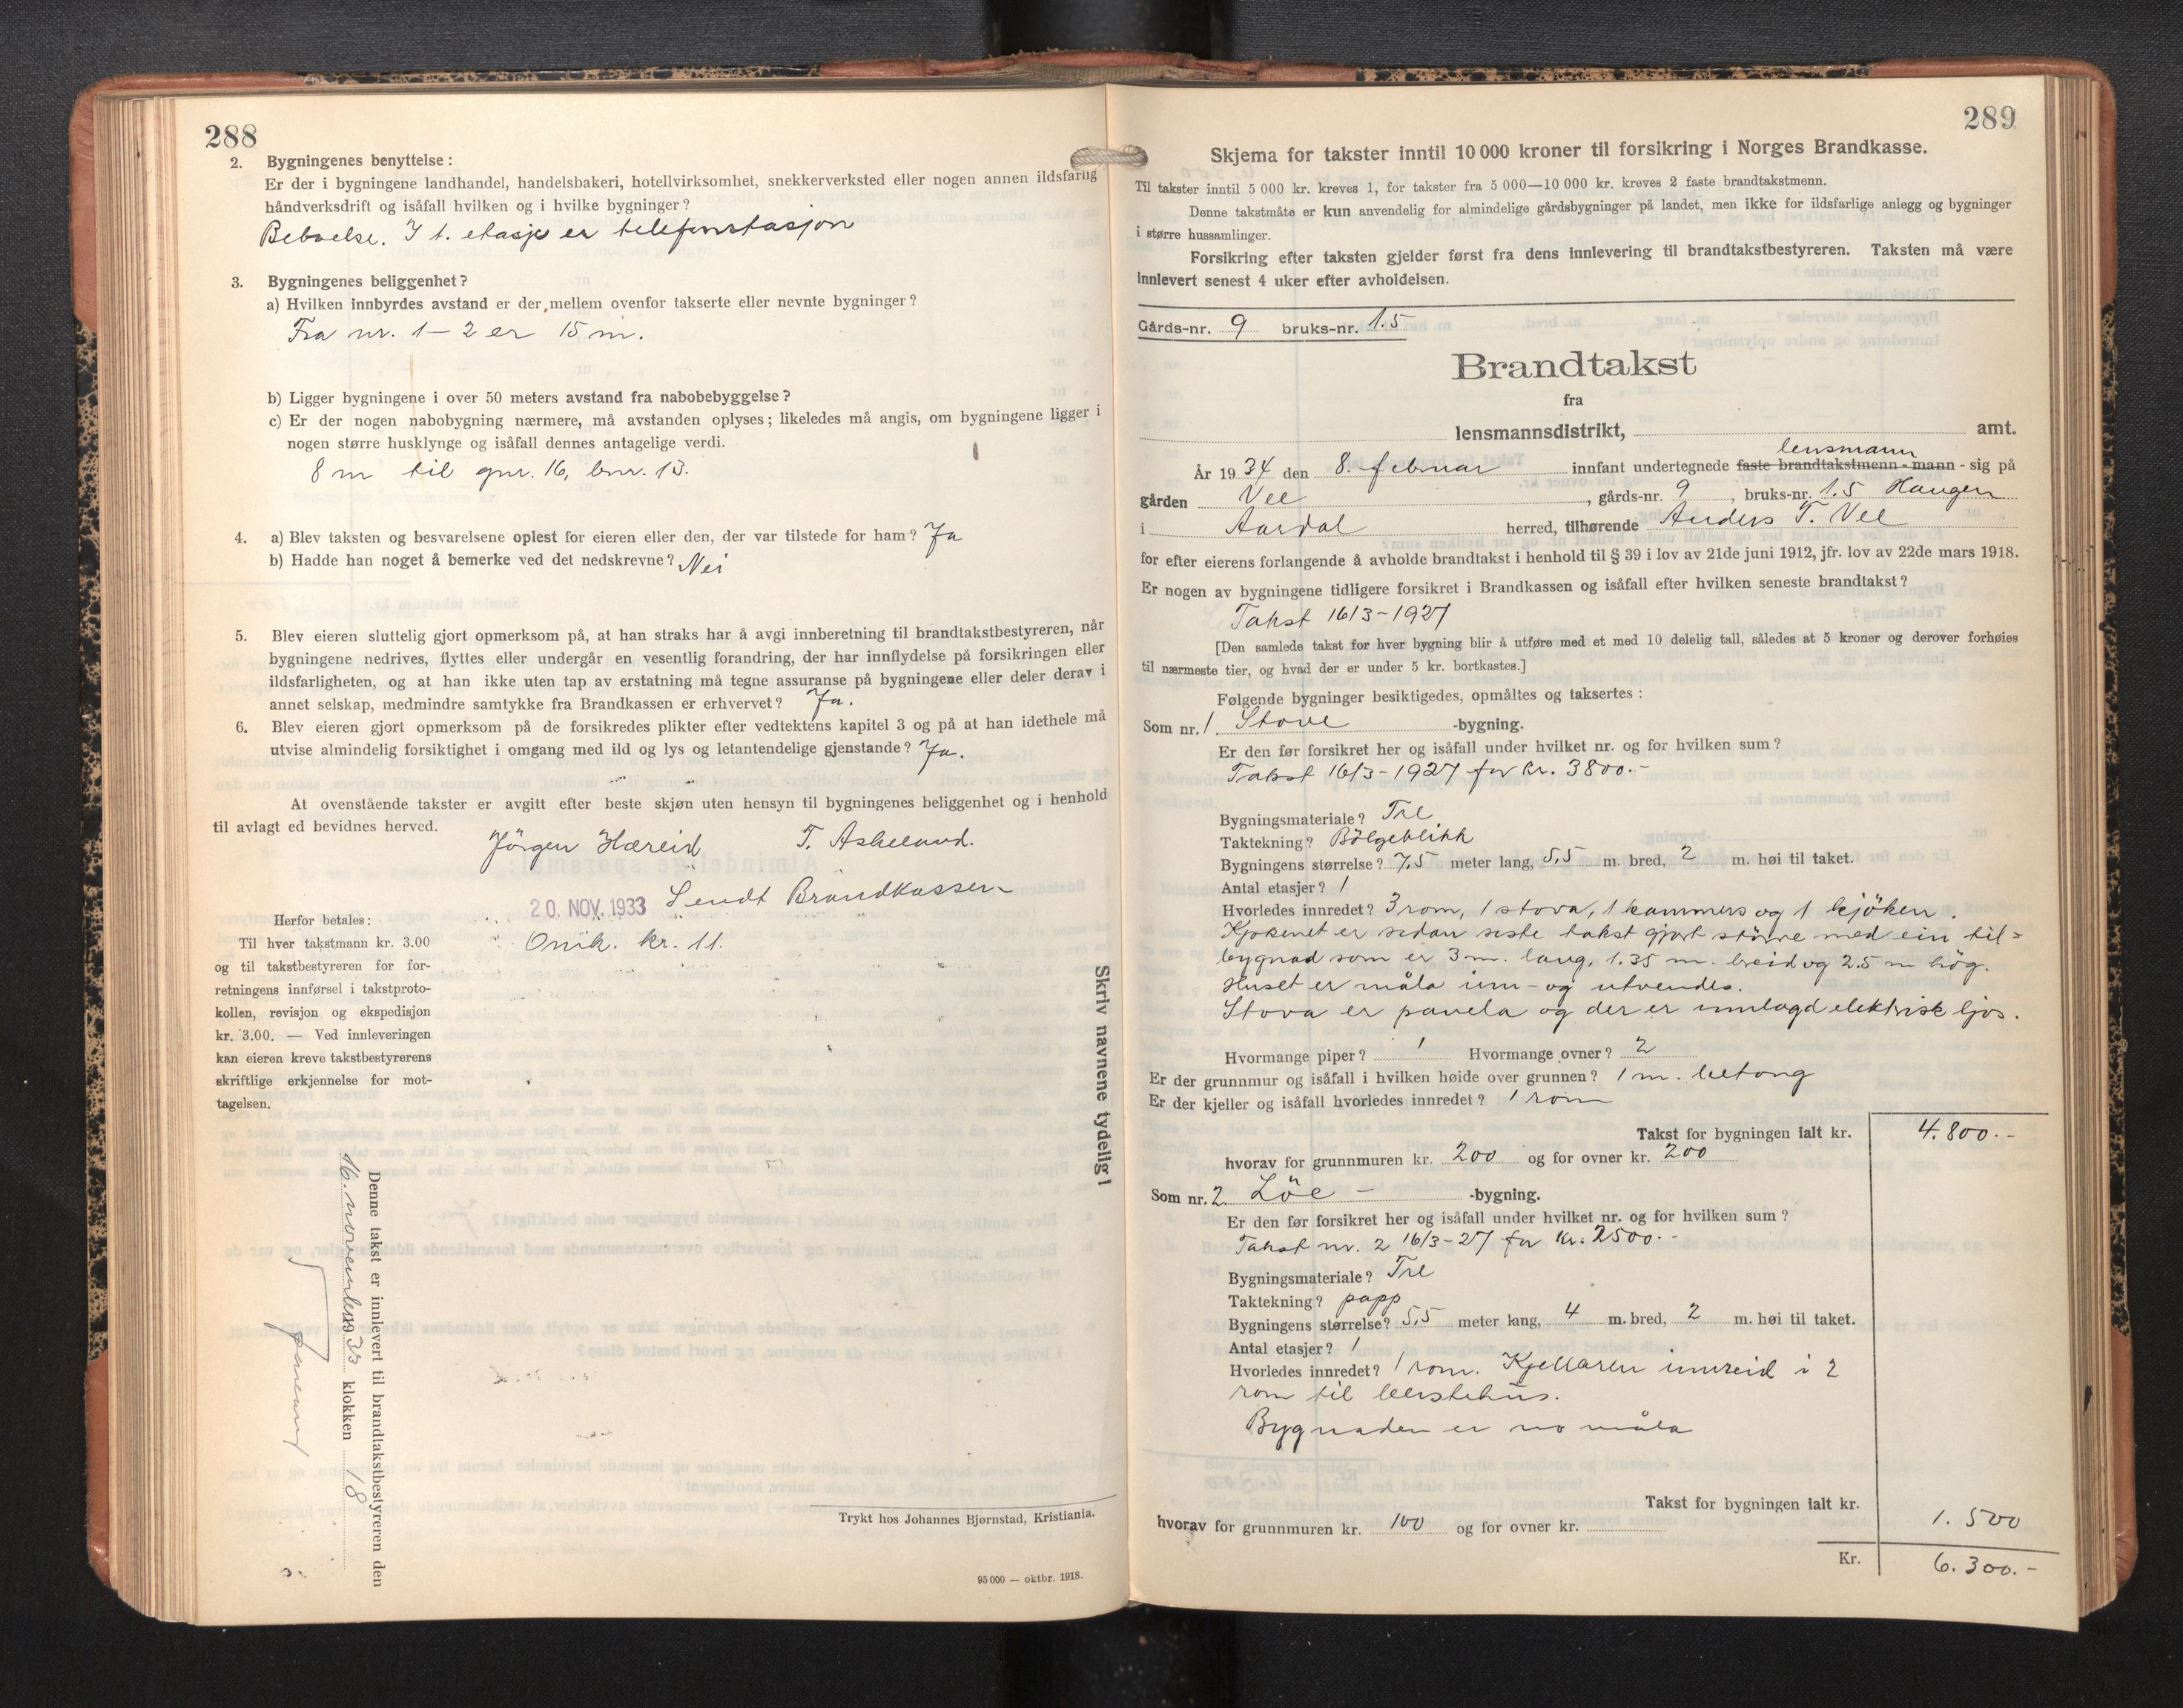 288
2. Bygningenes benyttelse:
Er der i bygningene landhandel, handelsbakeri, hotellvirksomhet, snekkerverksted eller nogen annen ildsfarlig
håndverksdrift og isåfall hvilken og i hvilke bygninger?
Beboelse. I 1. etasje er telefonstasjon
3. Bygningenes beliggenhet?
a) Hvilken innbyrdes avstand er der mellem ovenfor takserte eller nevnte bygninger?
Fra nr. 1 – 2 er 15 m.
b) Ligger bygningene i over 50 meters avstand fra nabobebyggelse?
c) Er der nogen nabobygning nærmere, må avstanden oplyses; likeledes må angis, om bygningene ligger i
nogen større husklynge og isåfall dennes antagelige verdi.
8 m til gnr. 16, bnr. 13.
4. a) Blev taksten og besvarelsene oplest for eieren eller den, der var tilstede for ham? Ja
b) Hadde han noget å bemerke ved det nedskrevne? Nei
5. Blev eieren sluttelig gjort opmerksom på, at han straks har å avgi innberetning til brandtakstbestyreren, når
bygningene nedrives, flyttes eller undergår en vesentlig forandring, der har innflydelse på forsikringen eller
ildsfarligheten, og at han ikke uten tap av erstatning må tegne assuranse på bygningene eller deler derav i
annet selskap, medmindre samtykke fra Brandkassen er erhvervet? Ja.
6. Blev eieren gjort opmerksom på de forsikredes plikter efter vedtektens kapitel 3 og på at han idethele må
utvise almindelig forsiktighet i omgang med ild og lys og letantendelige gjenstande? Ja.
At ovenstående takster er avgitt efter beste skjøn uten hensyn til bygningenes beliggenhet og i henhold
til avlagt ed bevidnes herved.
Jörgen Hæreid T. Askeland.
20. NOV. 1933 Sendt Brandkassen
Omk. kr. 11.
Herfor betales:
Til hver takstmann kr. 3.00
og til takstbestyreren for for-
retningens innførsel i takstproto-
kollen, revisjon og ekspedisjon
kr. 3.00. — Ved innleveringen
kan eieren kreve takstbestyrerens
skriftlige erkjennelse for mot-
tagelsen.
Skriv navnene tydelig!
Denne takst er innlevert til brandtakstbestyreren den
16. november 1933 klokken 18
Trykt hos Johannes Bjørnstad, Kristiania.
95 000 — oktbr. 1918.
289
Skjema for takster inntil 10 000 kroner til forsikring i Norges Brandkasse.
Til takster inntil 5 000 kr. kreves 1, for takster fra 5 000—10 000 kr. kreves 2 faste brandtakstmenn.
Denne takstmåte er kun anvendelig for almindelige gårdsbygninger på landet, men ikke for ildsfarlige anlegg og bygninger
i større hussamlinger.
Forsikring efter taksten gjelder først fra dens innlevering til brandtakstbestyreren. Taksten må være
innlevert senest 4 uker efter avholdelsen.
Gårds-nr. 9 bruks-nr. 1.5
Brandtakst
fra
lensmannsdistrikt, amt.
lensmann
År 1934 den 8. februar innfant undertegnede faste brandtakstmenn - mann - sig på
gården Vee, gårds-nr. 9, bruks-nr. 1.5 Haugen
i Aardal herred, tilhørende Anders T. Vee
for efter eierens forlangende å avholde brandtakst i henhold til § 39 i lov av 21de juni 1912, jfr. lov av 22de mars 1918.
Er nogen av bygningene tidligere forsikret i Brandkassen og isåfall efter hvilken seneste brandtakst?
Takst 16/3 – 1927
[Den samlede takst for hver bygning blir å utføre med et med 10 delelig tall, således at 5 kroner og derover forhøies
til nærmeste tier, og hvad der er under 5 kr. bortkastes.]
Følgende bygninger besiktigedes, opmåltes og taksertes:
Som nr. 1 Stove -bygning.
Er den før forsikret her og isåfall under hvilket nr. og for hvilken sum?
Takst 16/3 – 1927 for kr. 3800.-
Bygningsmateriale? Tre
Taktekning? Bölgeblikk
Bygningens størrelse? 7,5 meter lang, 5,5 m. bred, 2 m. høi til taket.
Antal etasjer? 1
Hvorledes innredet? 3 rom, 1 stova, 1 kammers og 1 kjöken.
Kjökenet er sidan siste takst gjort större med ein til=
bygnad som er 3 m. lang, 1.35 m. breid og 2.5 m hög.
Huset er måla inn- og utvendes.
Stova er panela og der er innlagd elektrisk ljos.
Hvormange piper? 1 Hvormange ovner? 2
Er der grunnmur og isåfall i hvilken høide over grunnen? 1 m. betong
Er der kjeller og isåfall hvorledes innredet? 1 rom
Takst for bygningen ialt kr. 4.800.-
hvorav for grunnmuren kr. 200 og for ovner kr. 200
Som nr. 2. Löe – -bygning.
Er den før forsikret her og isåfall under hvilket nr. og for hvilken sum?
Takst nr. 2 16/3-27 for kr. 2500.-
Bygningsmateriale? Tre
Taktekning? papp
Bygningens størrelse? 5,5 meter lang, 4 m. bred, 2 m. høi til taket.
Antal etasjer? 1
Hvorledes innredet? 1 rom. Kjellaren innreid i 2
rom til
Bygnaden er no måla
Takst for bygningen ialt kr. 1.500
hvorav for grunnmuren kr. 100 og for ovner kr.
Kr. 6.300.-